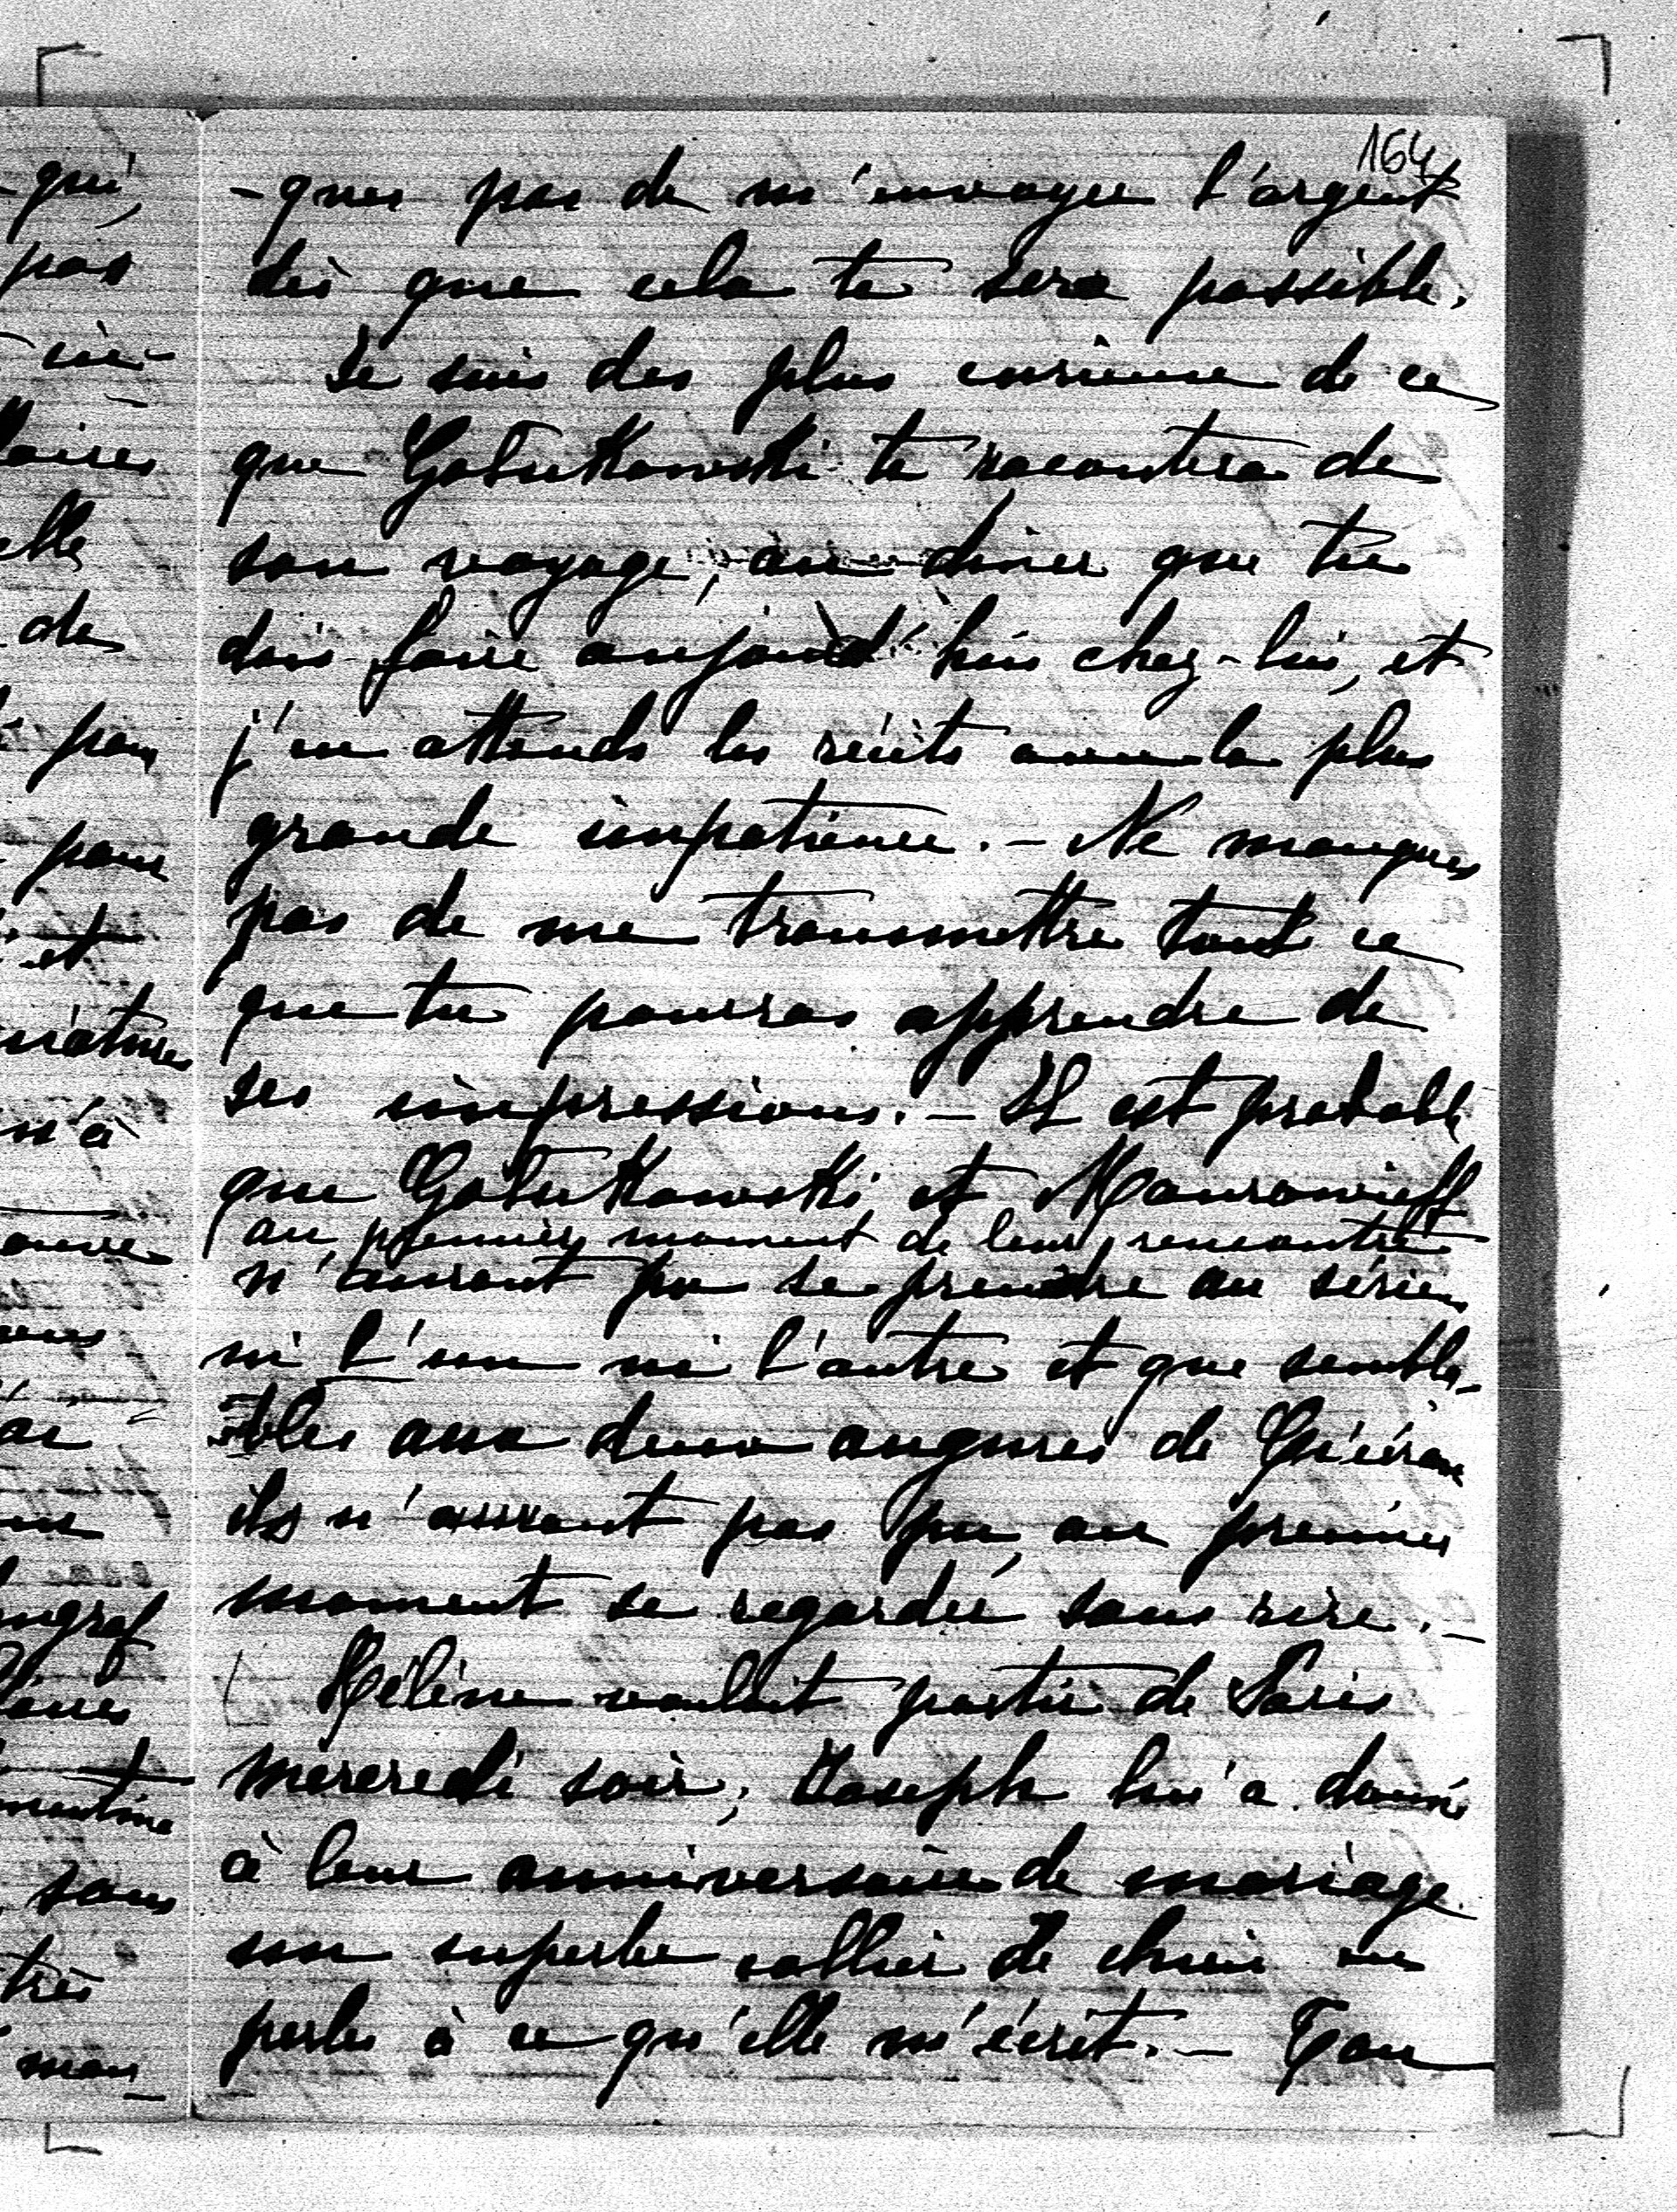 164
-quer pas de m'envoyer l'argent
dès que cela te sera possible.
Je suis des plus curieuse de ce
que Gołuchowski te racontera de
son voyage, au diner que tu
dois faire aujourd'hui chez-lui, et
j'en attends les récits avec la plus
grande impatience. - Ne manques
pas de me transmettre tout ce
que tu pourras apprendre de
ses impressions. - Il est probable
que et Mourawieff
au premier moment de leur rencontre
n'auront pu se prendre au sérieux
ni l'un ni l'autre et que sembla-
-bles aux deux augures de Cicéron
ils n'auront pas pu au premier
moment se regarder sans rire. -
Hélène voulait partir de Paris
mercredi soir; Joseph lui a donné
à leur anniversaire de mariage
un superbe collier de chien en
perles à ce qu'elle m'écrit. - Ton